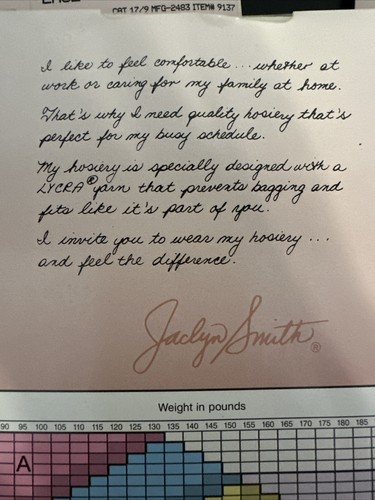 CAT 17/9 MFG-2483 ITEM# 9137
I like to feel comfortable...whether at
work or caring for my family at home.
That's why I need quality hosiery that's
perfect for my busy schedule.
My hosiery is specially designed with a
LYCRA® yarn that prevents bagging and
fits like it's part of you.
I invite you to wear my hosiery...
and feel the difference.
Jaclyn Smith®
Weight in pounds
90 95 100 105 110 115 120 125 130 135 140 145 150 155 160 165 170 175 180 185
A